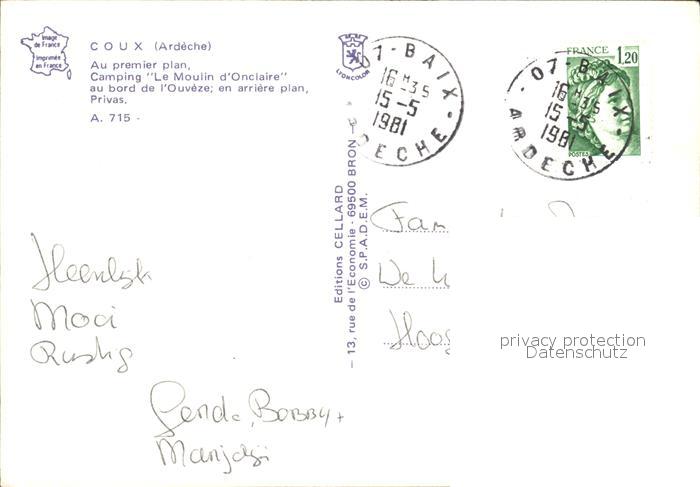 Image
de France
Imprimée
en France
COUX (Ardèche)
Au premier plan,
Camping "Le Moulin d'Onclaire"
au bord de l'Ouvèze; en arrière plan,
Privas.
A. 715 -
LYONCOLOR
07-BAIX
16 H-35
15-5
1981
ARDECHE
FRANCE
1,20
POSTES
07-BAIX
16 H-35
15-5
1981
ARDECHE
Editions CELLARD
— 13, rue de l'Economie - 69500 BRON —
© S.P.A.D.E.M.
Fam
De
Hoog
Heerlijk
Mooi
Rustig
Gerda, Bobby +
privacy protection
Datenschutz